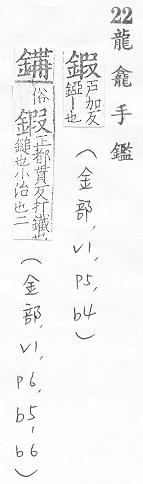 22 龍龕手鑑
鍜 戶加反錏丨也 (金部, v1, p5, b4)
俗 鍜 正都貫反打鐵也鎚也小冶也二 (金部, v1, p6, b5-b6)